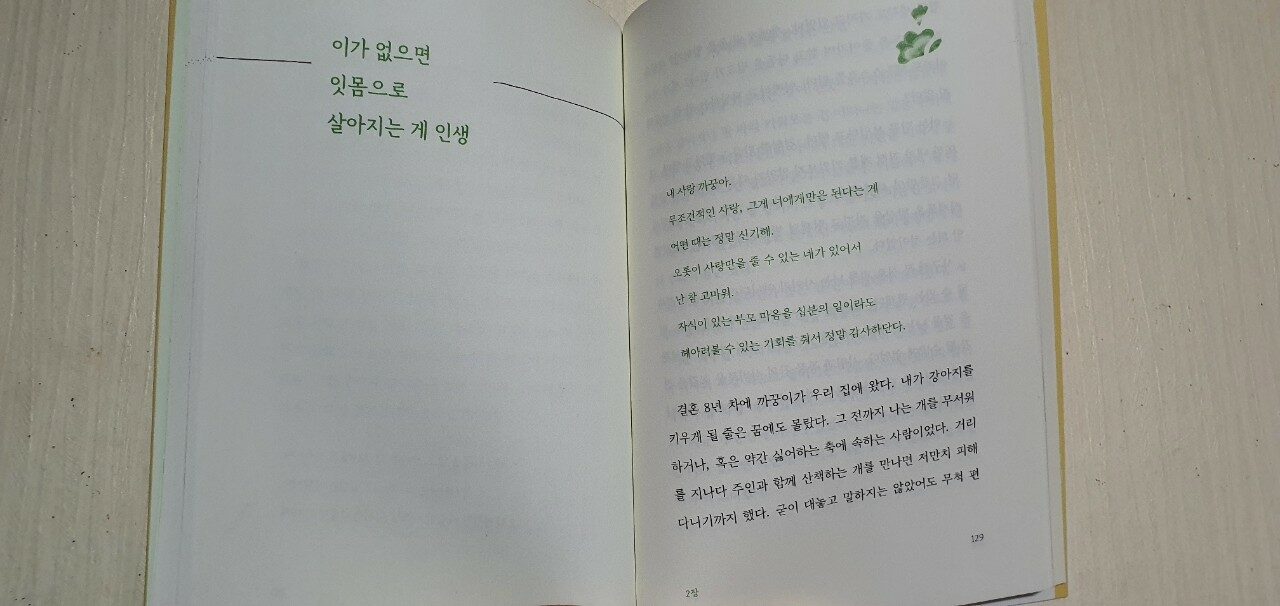 이가 없으면
잇몸으로
살아지는 게 인생
내 사랑 까꿍아.
무조건적인 사랑, 그게 너에게만은 된다는 게
어떤 때는 정말 신기해.
오롯이 사랑만을 줄 수 있는 네가 있어서
난 참 고마워.
자식이 있는 부모 마음을 십분의 일이라도
헤아려볼 수 있는 기회를 줘서 정말 감사하단다.
결혼 8년 차에 까꿍이가 우리 집에 왔다. 내가 강아지를
키우게 될 줄은 꿈에도 몰랐다. 그 전까지 나는 개를 무서워
하거나, 혹은 약간 싫어하는 축에 속하는 사람이었다. 거리
를 지나다 주인과 함께 산책하는 개를 만나면 저만치 피해
다니기까지 했다. 굳이 대놓고 말하지는 않았어도 무척 편
129
2장